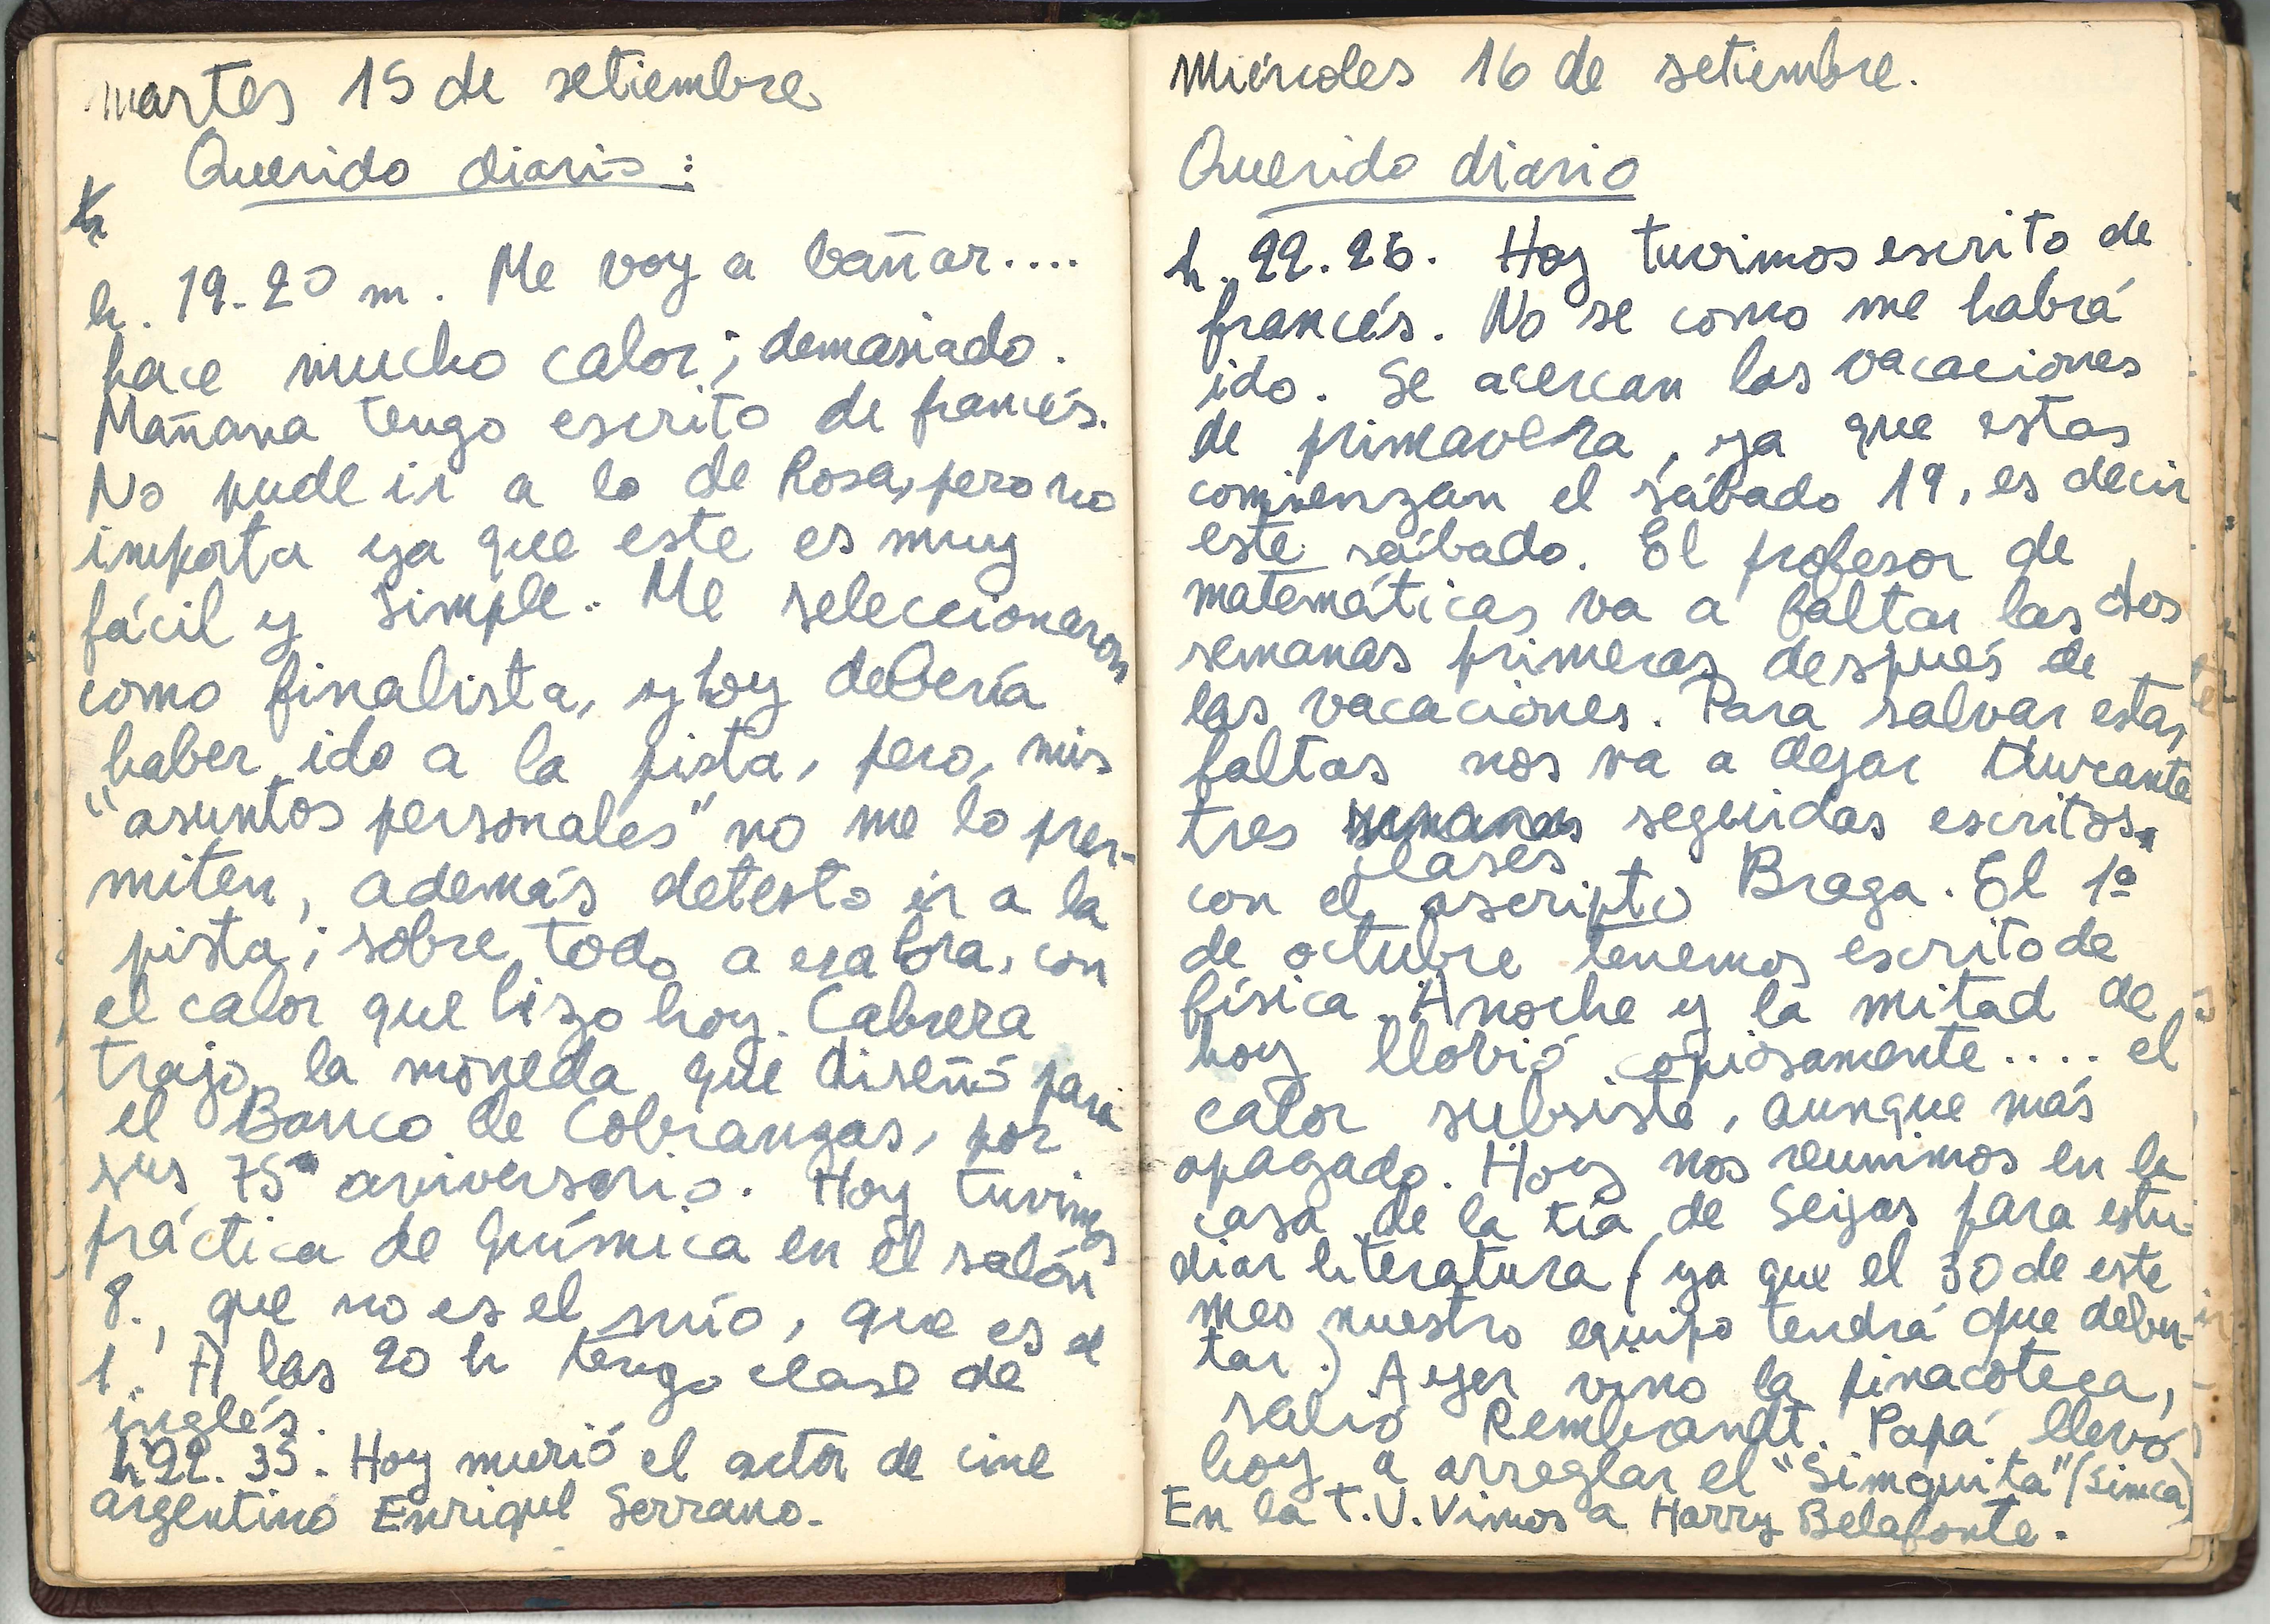 martes 15 de setiembre
Querido diario:
h. 19.20 m. Me voy a bañar....
hace mucho calor; demasiado.
Mañana tengo escrito de francés.
No pude ir a lo de Rosa, pero no
importa ya que este es muy
fácil y simple. Me seleccionaron
como finalista, y hoy debería
haber ido a la pista, pero, mis
"asuntos personales" no me lo per-
miten, además detesto ir a la
pista; sobre todo a esa hora, con
el calor que hizo hoy. Cabrera
trajo la moneda que diseñó para
el Banco de Cobranzas, por
sus 75º aniversario. Hoy tuvimos
práctica de química en el salón
8., que no es el mío, que es el
1. A las 20 h tengo clase de
inglés.
h 22. 35. Hoy murió el actor de cine
argentino Enrique Serrano.
Miércoles 16 de setiembre.
Querido diario
h. 22.26. Hoy tuvimos escrito de
francés. No se como me habrá
ido. Se acercan las vacaciones
de primavera, ya que estas
comienzan el sábado 19, es decir
este sábado. El profesor de
matemáticas va a faltar las dos
semanas primeras después de
las vacaciones. Para salvar estas
faltas nos va a dejar durante
tres semanas seguidas escritos.
clases
con el ascripto Braga. El 1º
de octubre tenemos escrito de
física. Anoche y la mitad de
hoy llovió copiosamente.... el
calor subsiste, aunque más
apagado. Hoy nos reunimos en la
casa de la tía de Seijas para estu-
diar literatura (ya que el 30 de este
mes nuestro equipo tendrá que debu-
tar.) Ayer vino la pinacoteca,
salió Rembrandt. Papá llevó
hoy a arreglar el "Simquita" (Simca)
En la T.V. Vimos a Harry Belafonte.